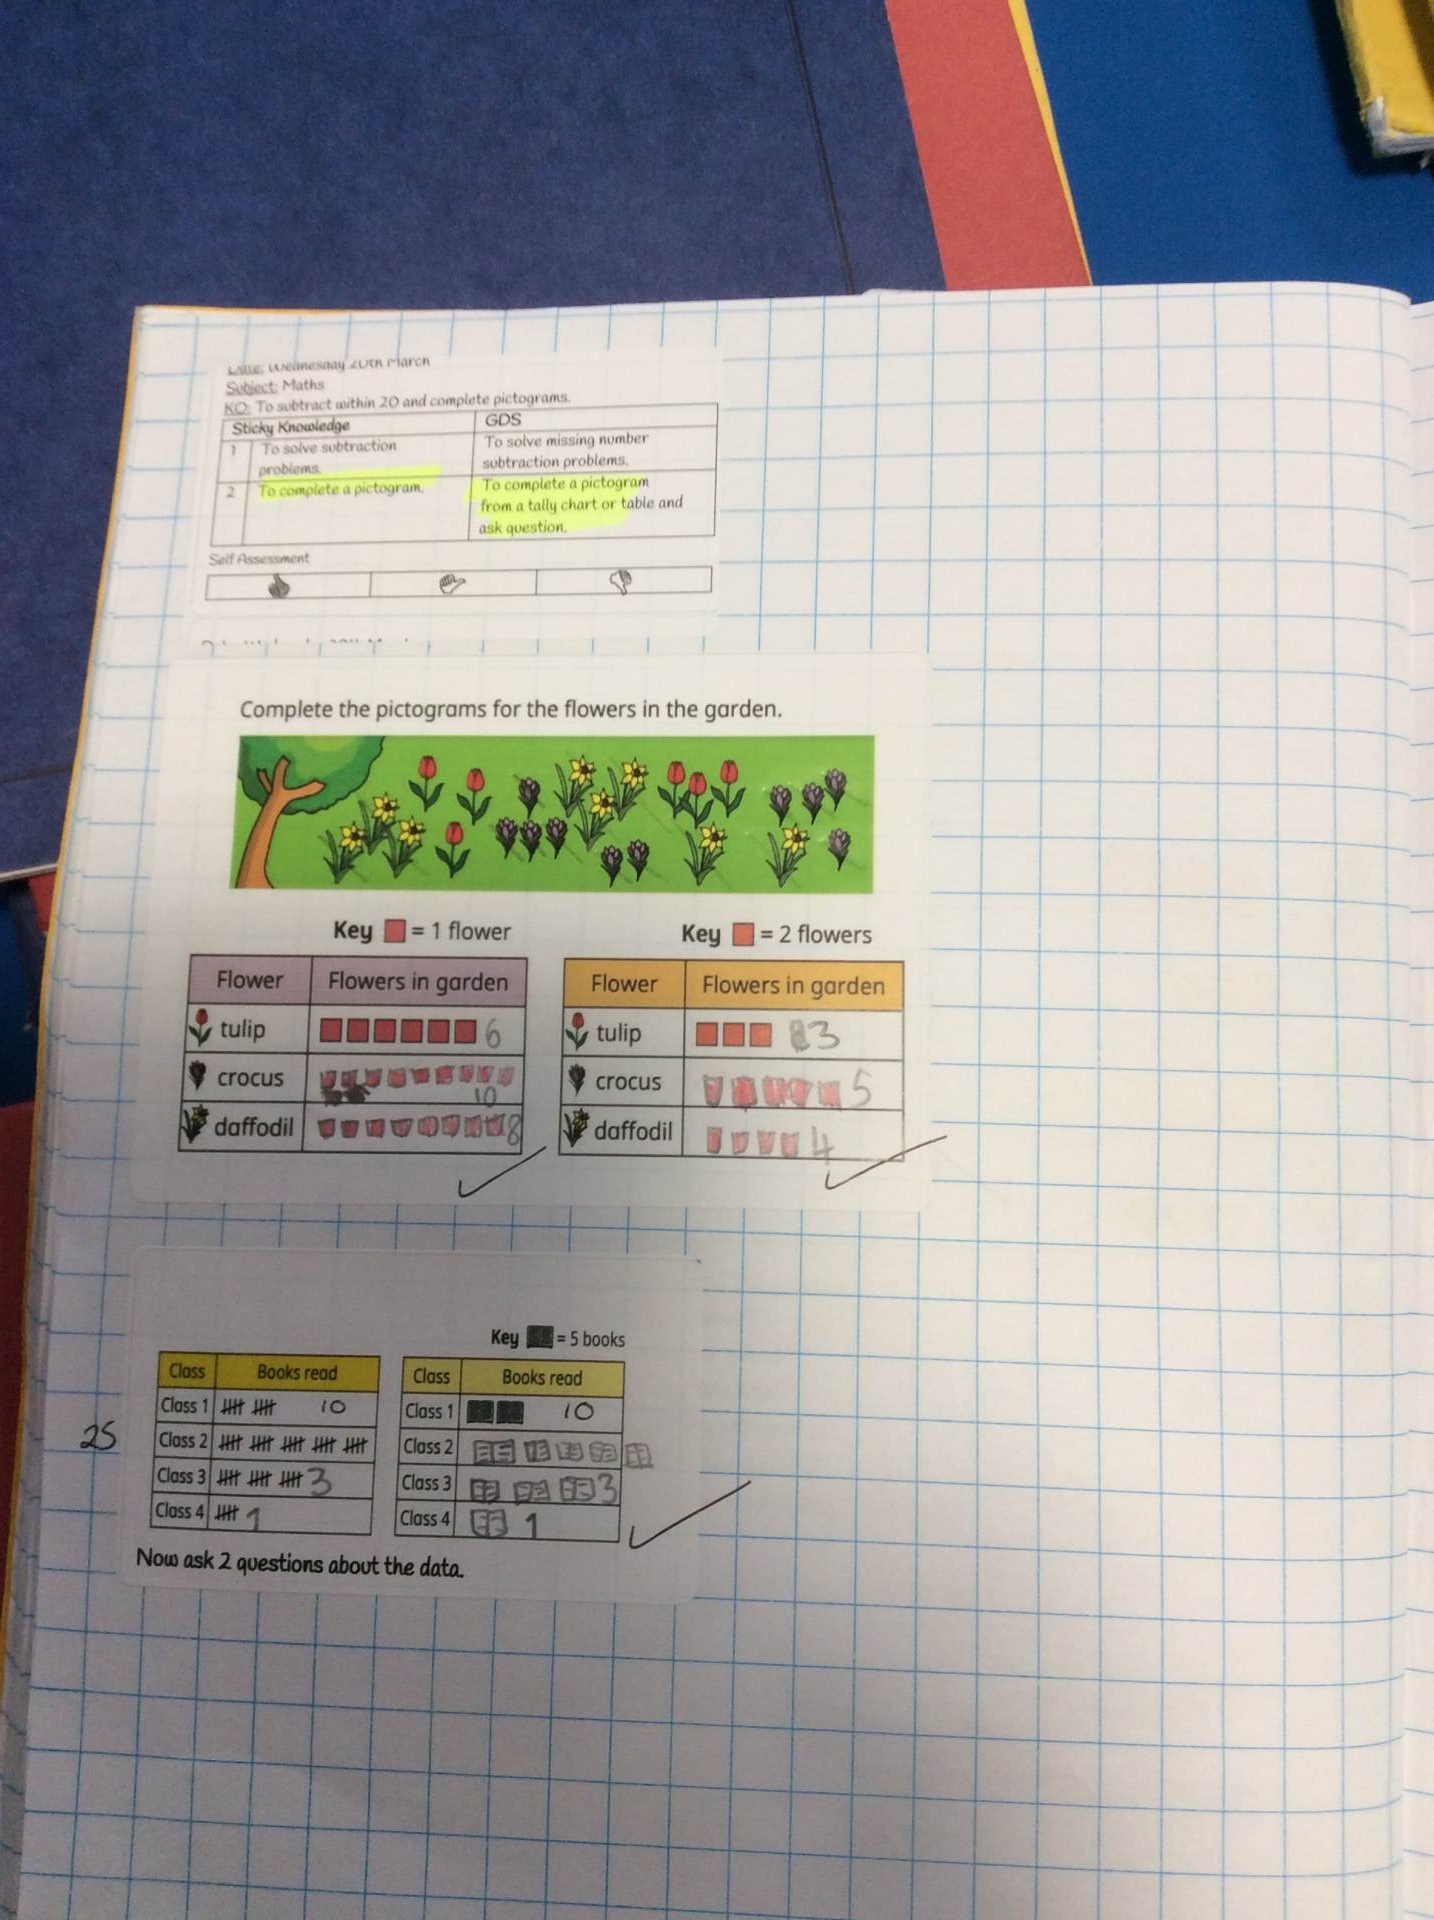 Date: Wednesday 20th March
Subject: Maths
KO: To subtract within 20 and complete pictograms.
Sticky Knowledge GDS
1 To solve subtraction problems. To solve missing number subtraction problems.
2 To complete a pictogram. To complete a pictogram from a tally chart or table and ask question.
Self Assessment
Complete the pictograms for the flowers in the garden.
Key = 1 flower
Flower Flowers in garden
tulip 6
crocus 10
daffodil 8
Key = 2 flowers
Flower Flowers in garden
tulip 3
crocus 5
daffodil 4
Class Books read
Class 1 10
25 Class 2
Class 3 3
Class 4 1
Key = 5 books
Class Books read
Class 1 10
Class 2
Class 3 3
Class 4 1
Now ask 2 questions about the data.